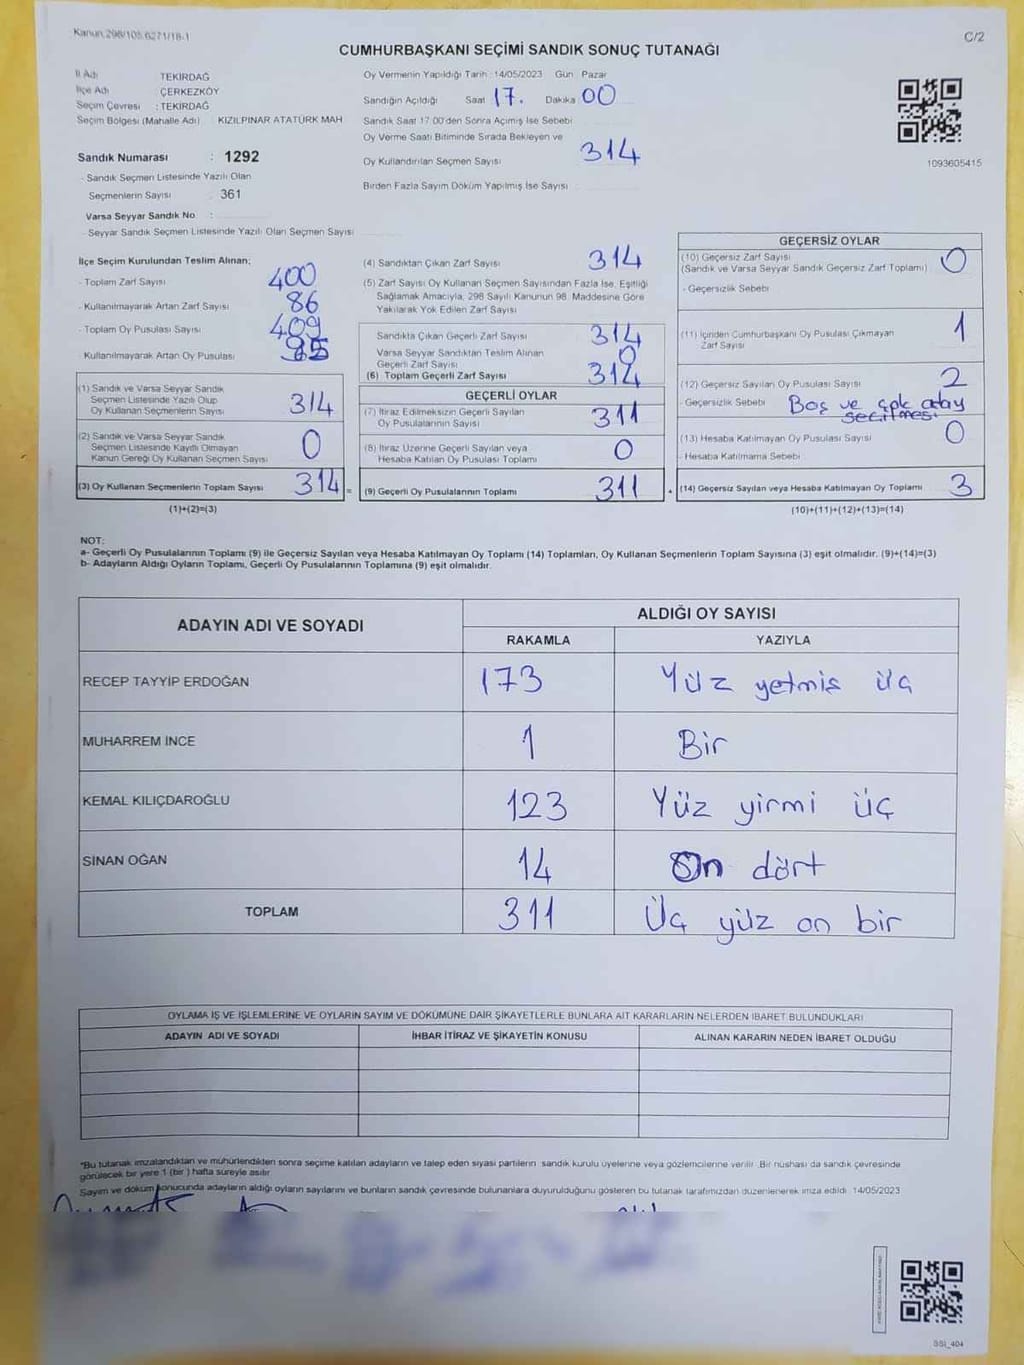 Kanun 298/105,6271/18.1
C/2
CUMHURBAŞKANI SEÇİMİ SANDIK SONUÇ TUTANAĞI
İl Adı TEKİRDAĞ
İlçe Adı ÇERKEZKÖY
Seçim Çevresi : TEKİRDAĞ
Seçim Bölgesi (Mahalle Adı) : KIZILPINAR ATATÜRK MAH
Sandık Numarası : 1292
- Sandık Seçmen Listesinde Yazılı Olan
Seçmenlerin Sayısı : 361
Varsa Seyyar Sandık No :
- Seyyar Sandık Seçmen Listesinde Yazılı Olan Seçmen Sayısı
Oy Vermenin Yapıldığı Tarih : 14/05/2023 Gün Pazar
Sandığın Açıldığı Saat 17. Dakika 00
Sandık Saat 17.00'den Sonra Açılmış İse Sebebi
Oy Verme Saati Bitiminde Sırada Bekleyen ve
Oy Kullandırılan Seçmen Sayısı 314
Birden Fazla Sayım Döküm Yapılmış İse Sayısı
1093605415
İlçe Seçim Kurulundan Teslim Alınan;
- Toplam Zarf Sayısı 400
- Kullanılmayarak Artan Zarf Sayısı 86
- Toplam Oy Pusulası Sayısı 409
- Kullanılmayarak Artan Oy Pusulası
(1) Sandık ve Varsa Seyyar Sandık
Seçmen Listesinde Yazılı Olup
Oy Kullanan Seçmenlerin Sayısı 314
(2) Sandık ve Varsa Seyyar Sandık
Seçmen Listesinde Kayıtlı Olmayan
Kanun Gereği Oy Kullanan Seçmen Sayısı 0
(3) Oy Kullanan Seçmenlerin Toplam Sayısı 314 =
(1)+(2)=(3)
(4) Sandıktan Çıkan Zarf Sayısı 314
(5) Zarf Sayısı Oy Kullanan Seçmen Sayısından Fazla İse, Eşitliği
Sağlamak Amacıyla, 298 Sayılı Kanunun 98. Maddesine Göre
Yakılarak Yok Edilen Zarf Sayısı
Sandıkta Çıkan Geçerli Zarf Sayısı 314
Varsa Seyyar Sandıktan Teslim Alınan
Geçerli Zarf Sayısı 0
(6) Toplam Geçerli Zarf Sayısı 314
GEÇERLİ OYLAR
(7) İtiraz Edilmeksizin Geçerli Sayılan
Oy Pusulasının Sayısı 311
(8) İtiraz Üzerine Geçerli Sayılan veya
Hesaba Katılan Oy Pusulası Toplamı 0
(9) Geçerli Oy Pusulalarının Toplamı 311 +
GEÇERSİZ OYLAR
(10) Geçersiz Zarf Sayısı 0
(Sandık ve Varsa Seyyar Sandık Geçersiz Zarf Toplamı)
- Geçersizlik Sebebi
(11) İçinden Cumhurbaşkanı Oy Pusulası Çıkmayan
Zarf Sayısı 1
(12) Geçersiz Sayılan Oy Pusulası Sayısı 2
- Geçersizlik Sebebi Boş ve çok aday
seçilmesi
(13) Hesaba Katılmayan Oy Pusulası Sayısı 0
- Hesaba Katılmama Sebebi
(14) Geçersiz Sayılan veya Hesaba Katılmayan Oy Toplamı 3
(10)+(11)+(12)+(13)=(14)
NOT:
a- Geçerli Oy Pusulalarının Toplamı (9) ile Geçersiz Sayılan veya Hesaba Katılmayan Oy Toplamı (14) Toplamları, Oy Kullanan Seçmenlerin Toplam Sayısına (3) eşit olmalıdır. (9)+(14)=(3)
b- Adayların Aldığı Oyların Toplamı, Geçerli Oy Pusulalarının Toplamına (9) eşit olmalıdır.
ADAYIN ADI VE SOYADI
ALDIĞI OY SAYISI
RAKAMLA YAZIYLA
RECEP TAYYİP ERDOĞAN 173 Yüz yetmiş üç
MUHARREM İNCE 1 Bir
KEMAL KILIÇDAROĞLU 123 Yüz yirmi üç
SİNAN OĞAN 14 On dört
TOPLAM 311 Üç yüz on bir
OYLAMA İŞ VE İŞLEMLERİNE VE OYLARIN SAYIM VE DÖKÜMÜNE DAİR ŞİKAYETLERLE BUNLARA AİT KARARLARIN NELERDEN İBARET BULUNDUKLARI
ADAYIN ADI VE SOYADI İHBAR İTİRAZ VE ŞİKAYETİN KONUSU ALINAN KARARIN NEDEN İBARET OLDUĞU
*Bu tutanak imzalandıktan ve mühürlendikten sonra seçime katılan adayların ve talep eden siyasi partilerin sandık kurulu üyelerine veya gözlemcilerine verilir. Bir nüshası da sandık çevresinde
görülecek bir yere 1 (bir) hafta süreyle asılır.
Sayım ve döküm sonucunda adayların aldığı oyların sayılarını ve bunların sandık çevresinde bulunanlara duyurulduğunu gösteren bu tutanak tarafımızdan düzenlenerek imza edildi. 14/05/2023
SSI_404